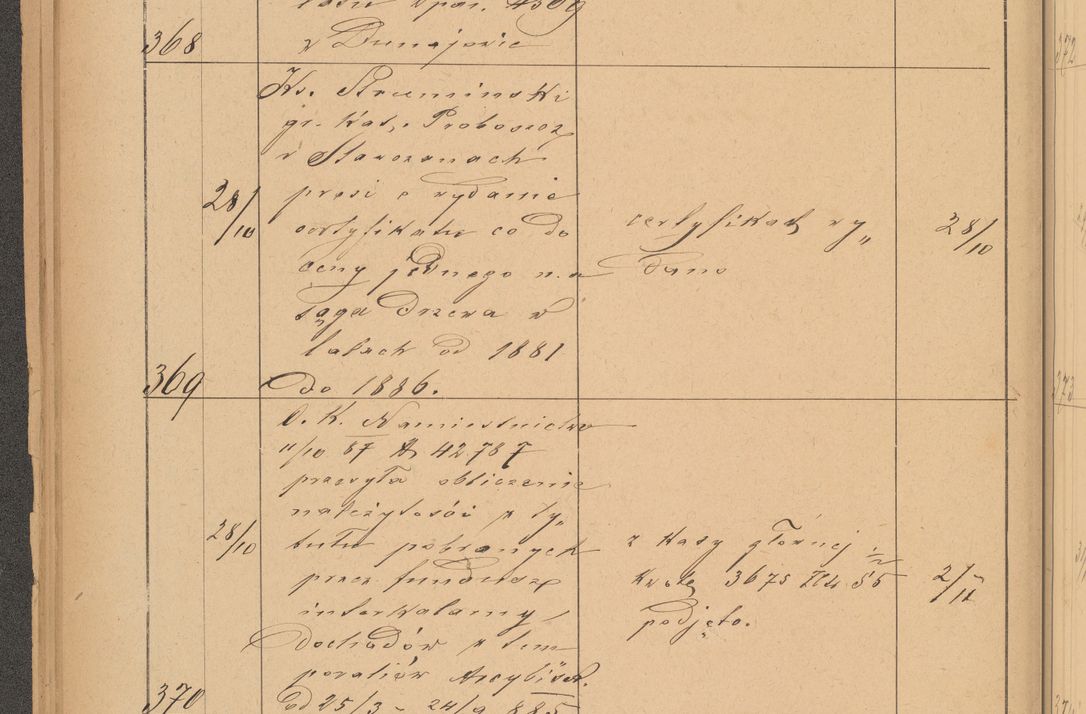 368
w Dunajowie
Ks. Strumiński
gr. kat. Proboszcz
w Starczanach
28/10 prosi o wydanie
certyfikatu co do
ceny jednego n.a
sąga drzewa w
latach od 1881
369 do 1886.
certyfikat wy„
dano
28/10
C. K. Namiestnictwo
11/10 87 42787
przesyła obliczenie
należytości z ty„
28/10 tułu pobranych
przez fundusz
interkalarny
dochodów z tem
poraliów Arcybisk.
370 od 25/3 - 24/9 885
z kasy głównej
kwotę 3675 złr 55
podjęto.
2/12
372
373